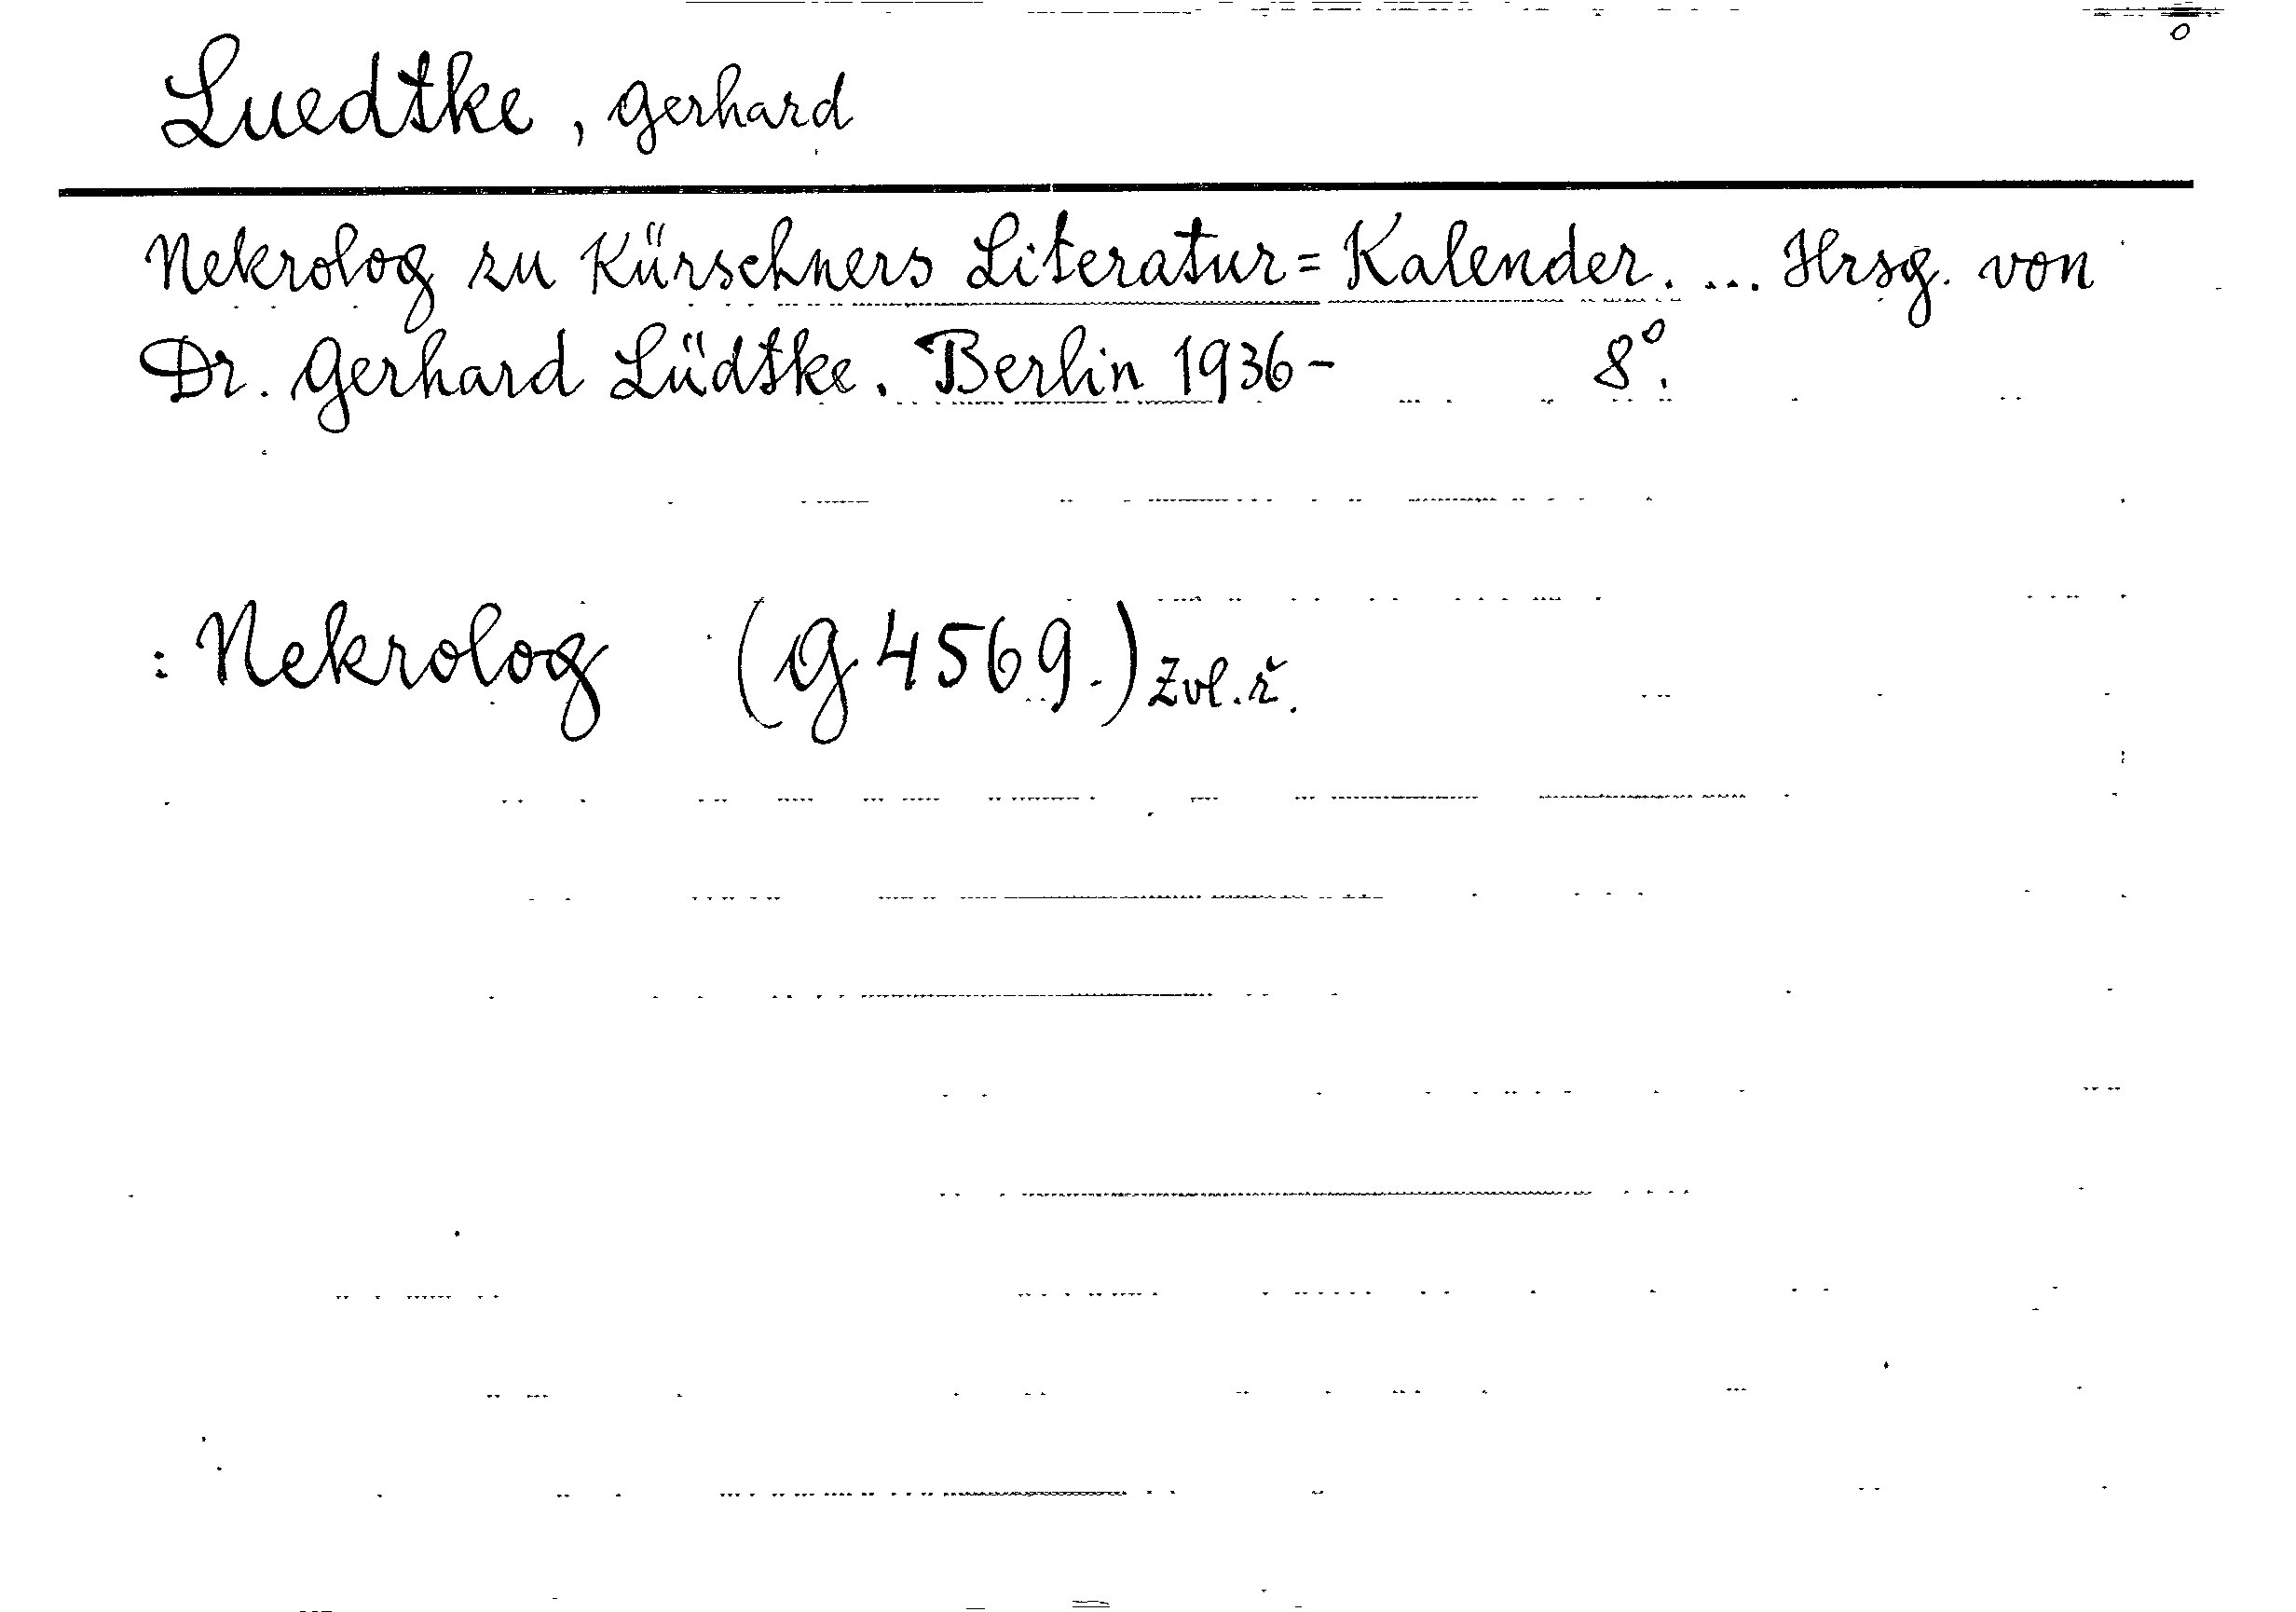 Luedtke, Gerhard
Nekrolog zu Kürschners Literatur=Kalender. ... Hrsg. von
Dr. Gerhard Lüdtke. Berlin 1936- 8°.
: Nekrolog (G 4569.) Zvl. ř.